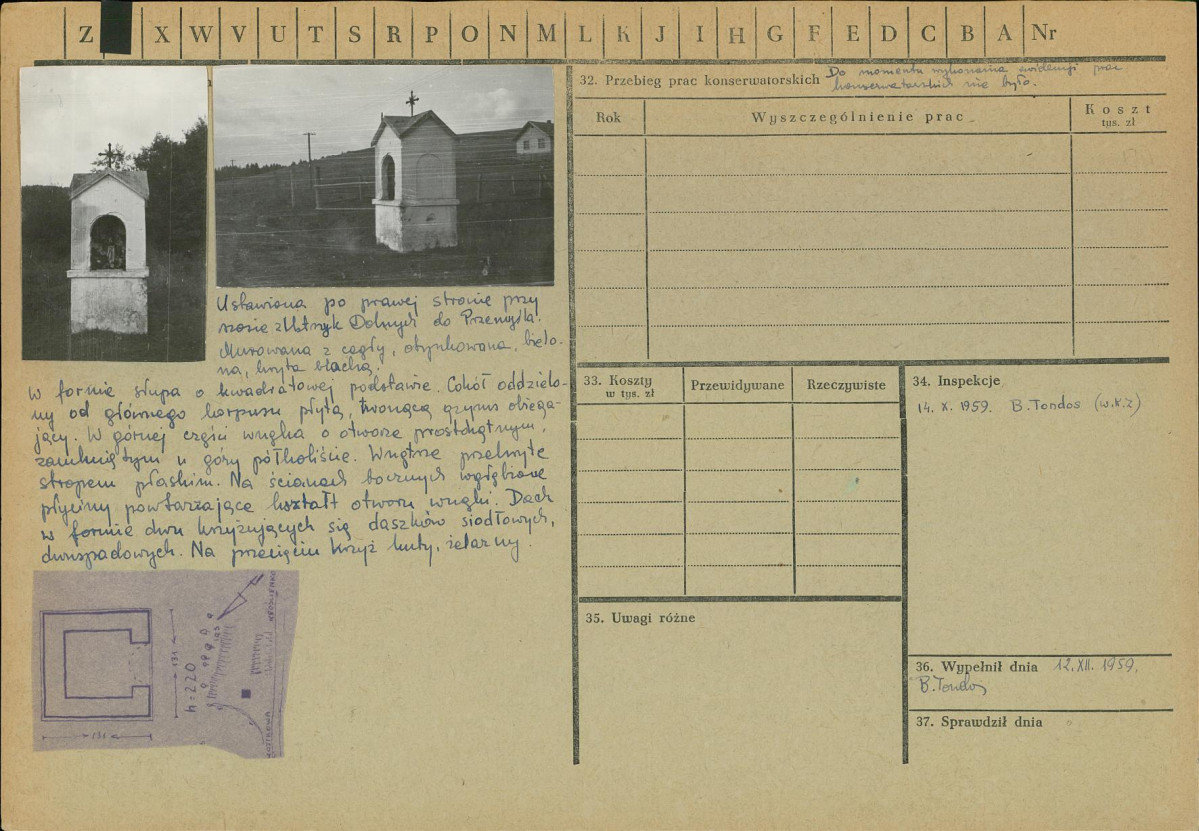 Z X W V U T S R P O N M L K J I H G F E D C B A Nr
32. Przebieg prac konserwatorskich Do momentu wykonania ewidencji prac
konserwatorskich nie było.
Rok Wyszczególnienie prac Koszt
tys. zł
Ustawiona po prawej stronie przy
szosie z Ustrzyk Dolnych do Przemyśla.
Murowana z cegły, otynkowana, bielo-
na, kryta blachą.
W formie słupa o kwadratowej podstawie. Cokół oddzielo-
ny od głównego korpusu płytą, tworzącą gzyms obiega-
jący. W górnej części wnęka o otworze prostokątnym,
zamkniętym u góry półkoliście. Wnętrze przekryte
stropem płaskim. Na ścianach bocznych wgłębione
płyciny powtarzające kształt otworu wnęki. Dach
w formie dwu krzyżujących się daszków siodłowych,
dwuspadowych. Na przecięciu krzyż kuty, żelazny.
131
h=220
131
KROŚCIENKO
33. Koszty
w tys. zł
Przewidywane
Rzeczywiste
34. Inspekcje
14. X. 1959. B. Tondos (w.k.z)
35. Uwagi różne
36. Wypełnił dnia 12. XII. 1959.
B. Tondos
37. Sprawdził dnia